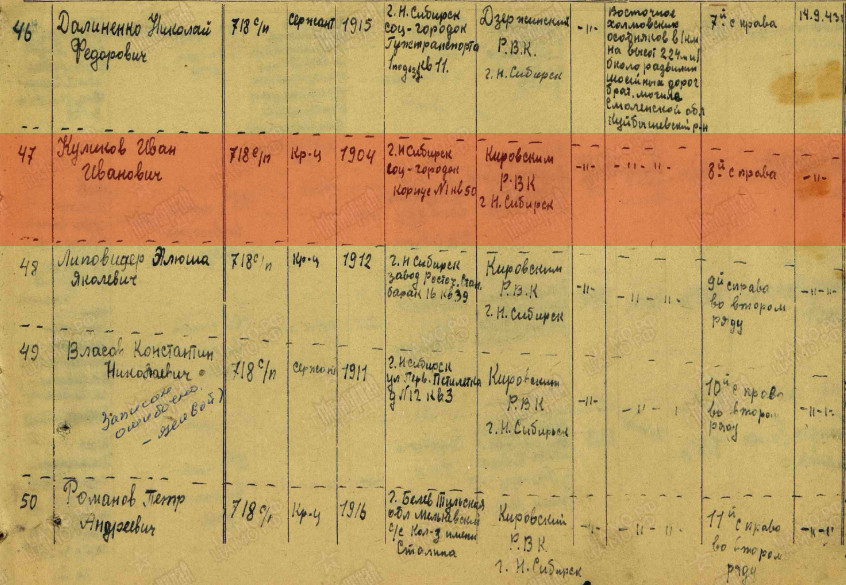 46 Далиненко Николай Федорович 718 с/п сержант 1915 г. Н. Сибирск соц-городок Гужтранспорта кв 11. Дзержинский Р.В.К. г. Н. Сибирск -"- Восточнее особняков в 1 км на высот 224 около развилки дорог брат. могила Смоленской обл Куйбышевский р-н 7й справа 14.9.43
47 Куликов Иван Иванович 718 с/п Кр-ц 1904 г. Н Сибирск Соц-городок Корпус №1 кв 50 Кировским Р.В.К г. Н. Сибирск -"- -"-"- 8й справа -"-
48 Липовидер Илюша Яколевич 718 с/п Кр-ц 1912 г. Н Сибирск завод барак 16 кв 39 Кировским Р.В.К г. Н. Сибирск -"- -"-"- 9й справа во втором ряду -"-
49 Власов Константин Николаевич 718 с/п сержант 1911 г. Н Сибирск ул Перв. Петилетка д №12 кв3 Кировским Р.В.К г. Н. Сибирск -"- -"-"- 10й справа во втором ряду -"-
Записан ошибочно - живой)
50 Романов Петр Андреевич 718 с/п Кр-ц 1916 г. Белев Тульская обл с/с Кол-з имени Сталина Кировский Р.В.К г. Н. Сибирск -"- -"-"- 11й справа во втором ряду -"-